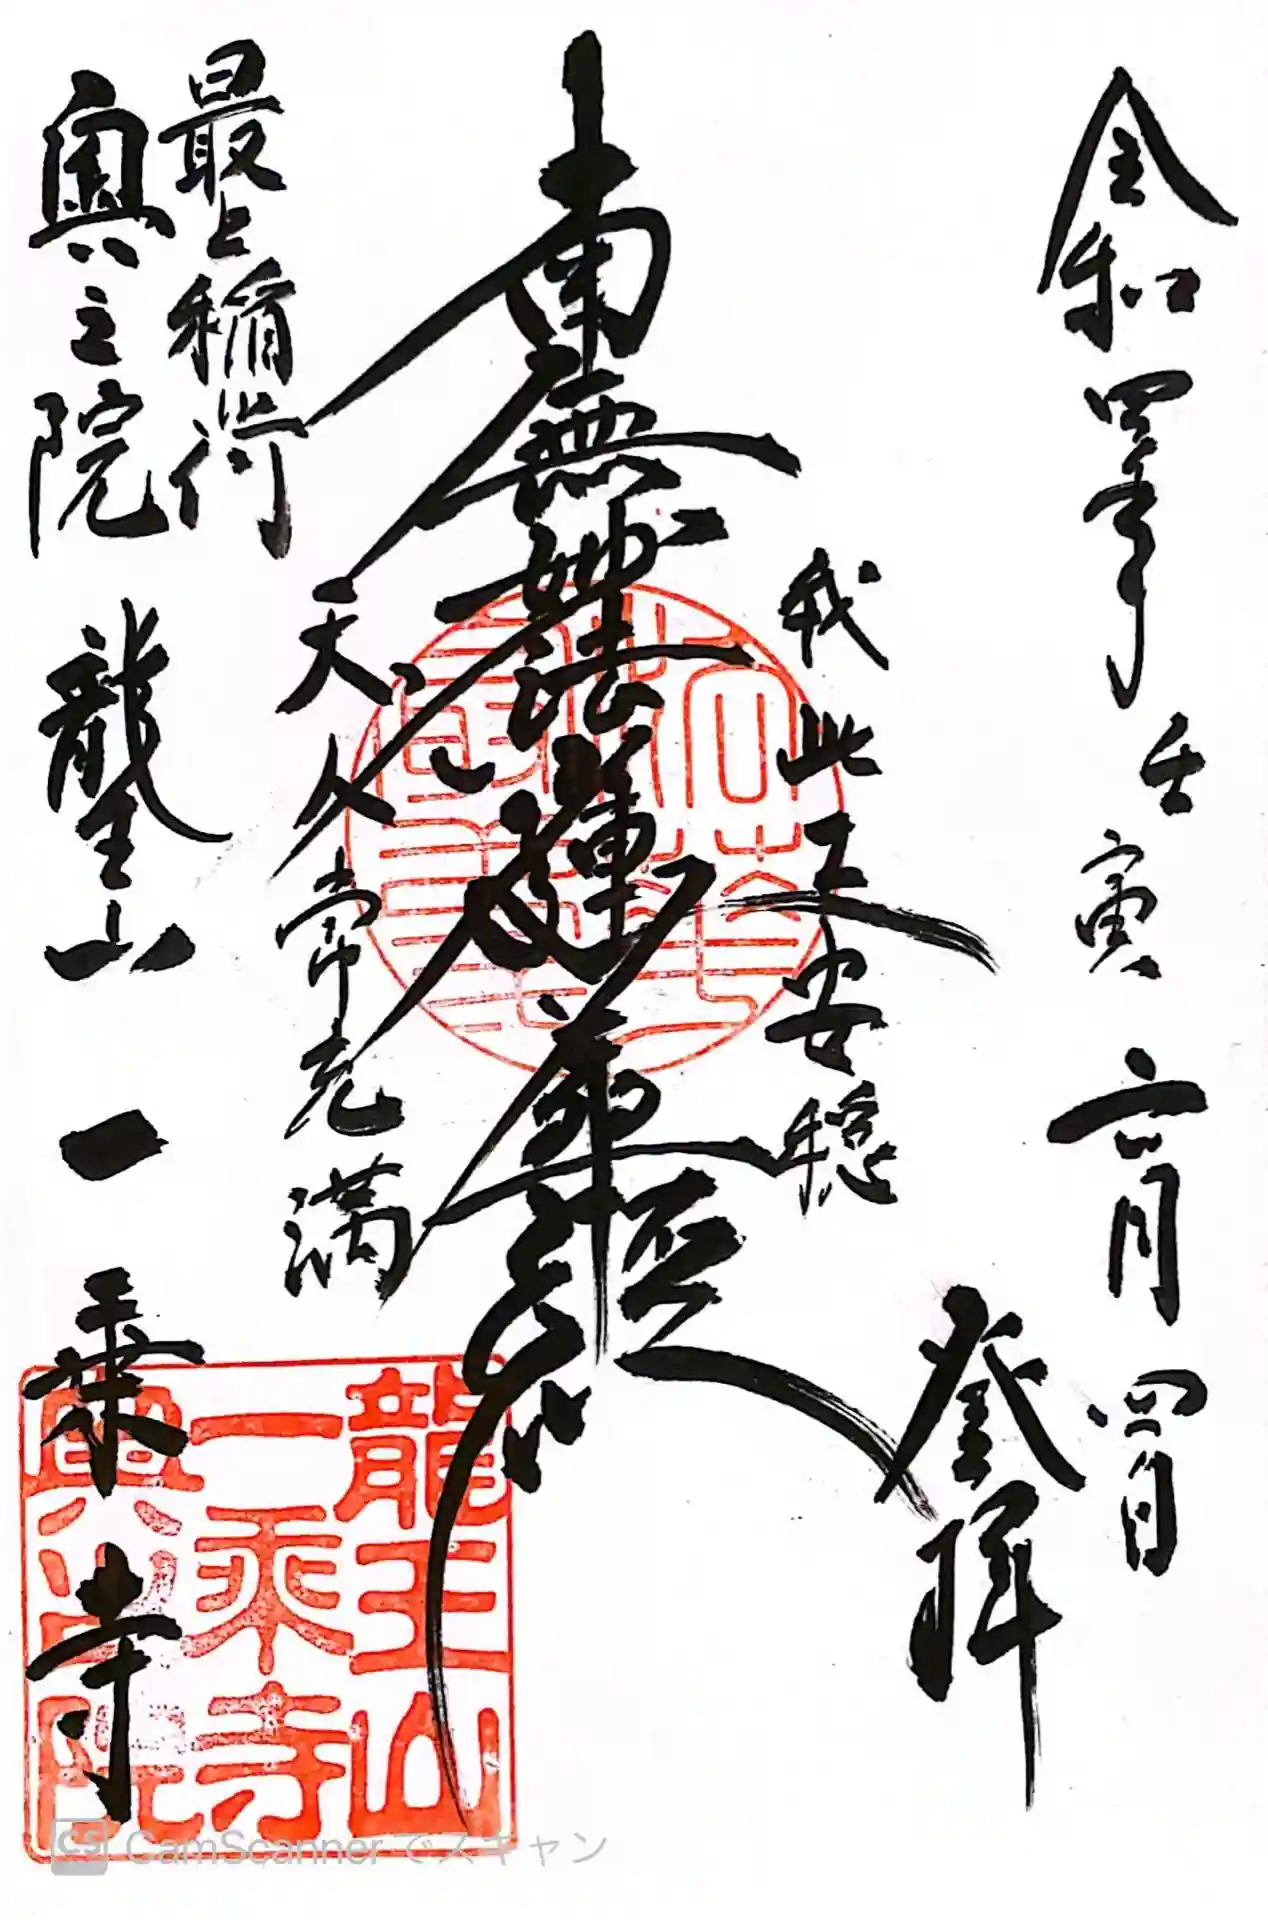 令和四年 壬寅 六月 四日
登拝
我此土安穏
南無妙法蓮華経
天人常充満
最上稲荷
奥之院 龍王山 一乗寺
龍王山
一乗寺
奥之院
CS CamScanner でスキャン